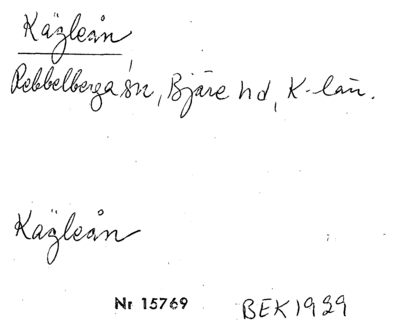 Kägleån
Rebbelberga sn, Bjäre hd, K-län.
Kägleån
Nr 15769 BEK 1929